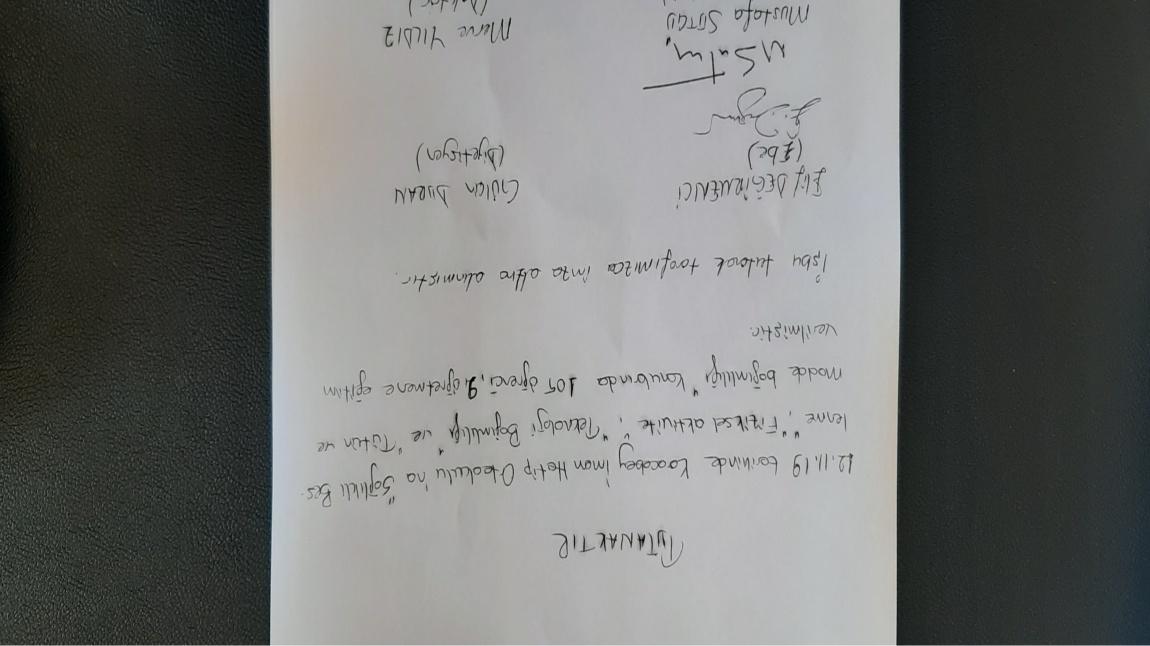 TUTANAKTIR
12.11.19 tarihinde Karacabey İmam Hatip Ortaokulu'na "Sağlıklı Bes-
lenme", "Fiziksel aktivite", "Teknoloji Bağımlılığı" ve "Tütün ve
madde bağımlılığı" konularında 105 öğrenci, 9 öğretmene eğitim
verilmiştir.
İşbu tutanak tarafımızca imza altına alınmıştır.
Elif DEĞİRMENCİ Gülcin DURAN
(Ebe) (Diyetisyen)
Mustafa Merve YILDIZ